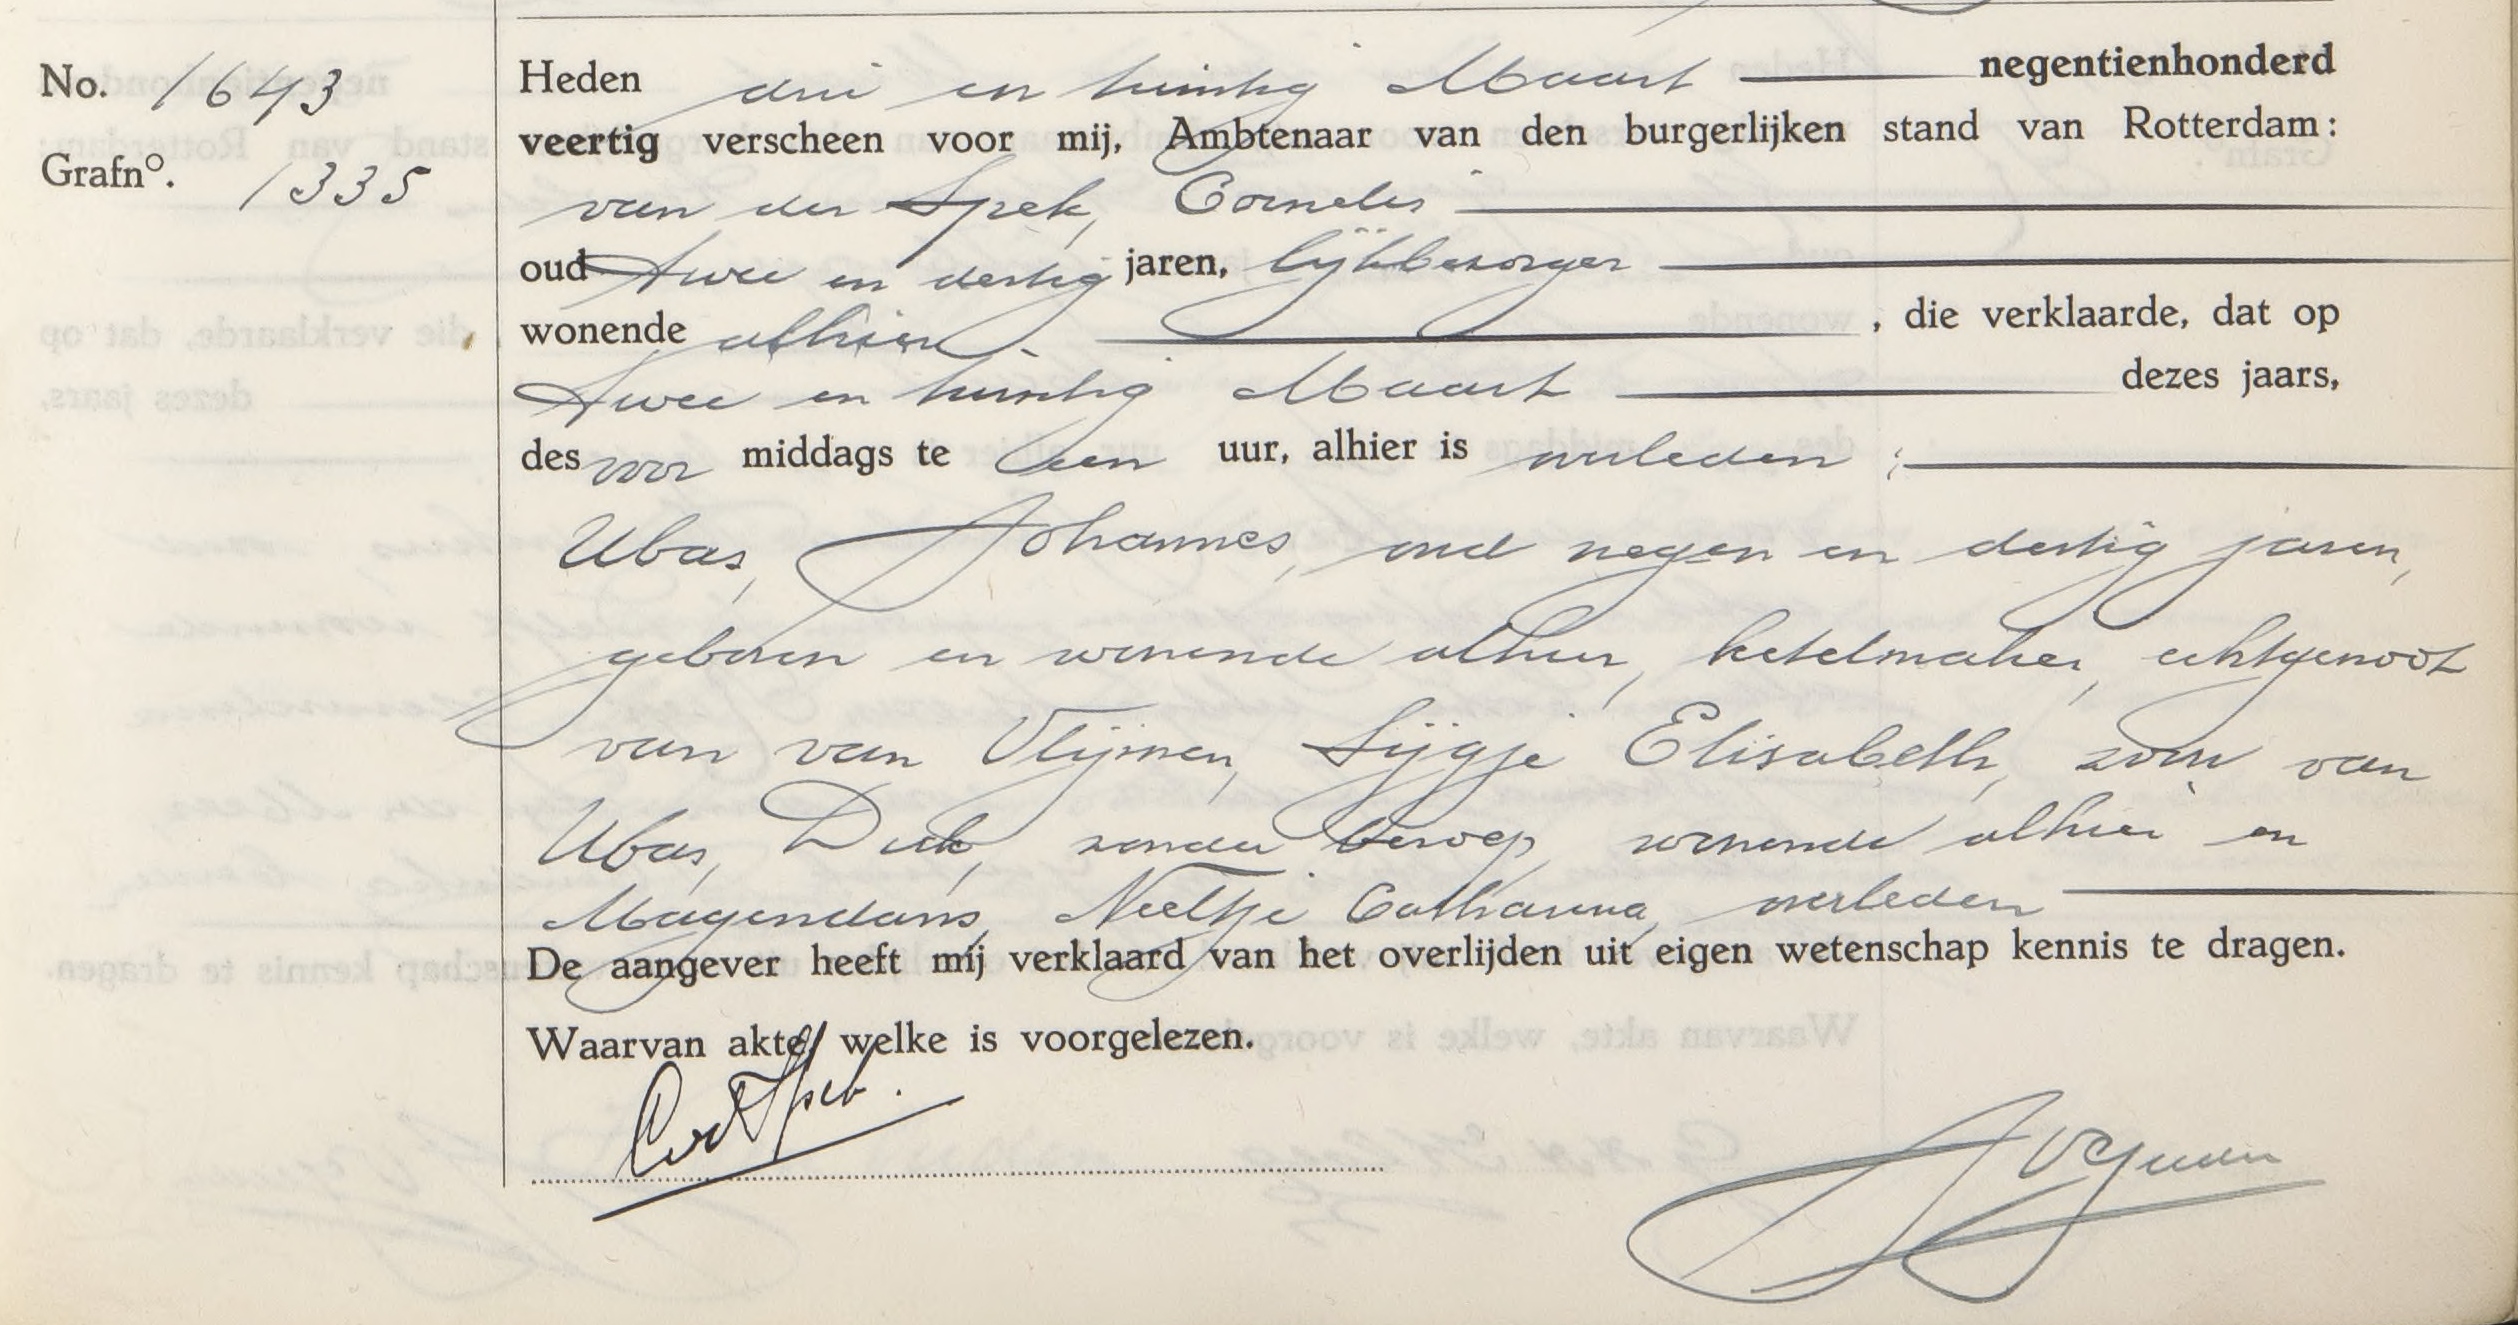 No. 1643
Grafn°. 1335
Heden drie en twintig Maart negentienhonderd
veertig verscheen voor mij, Ambtenaar van den burgerlijken stand van Rotterdam:
van der Spek, Cornelis
oud twee en dertig jaren, lijkbezorger
wonende alhier, die verklaarde, dat op
twee en twintig Maart dezes jaars,
des voor middags te een uur, alhier is overleden:
Ubas, Johannes, oud negen en dertig jaren,
geboren en wonende alhier, ketelmaker, echtgenoot
van van Vlijmen, Sijgje Elisabeth, zoon van
Ubas, Dirk, zonder beroep, wonende alhier en
Magendans, Neeltje Catharina, overleden
De aangever heeft mij verklaard van het overlijden uit eigen wetenschap kennis te dragen.
Waarvan akte, welke is voorgelezen.